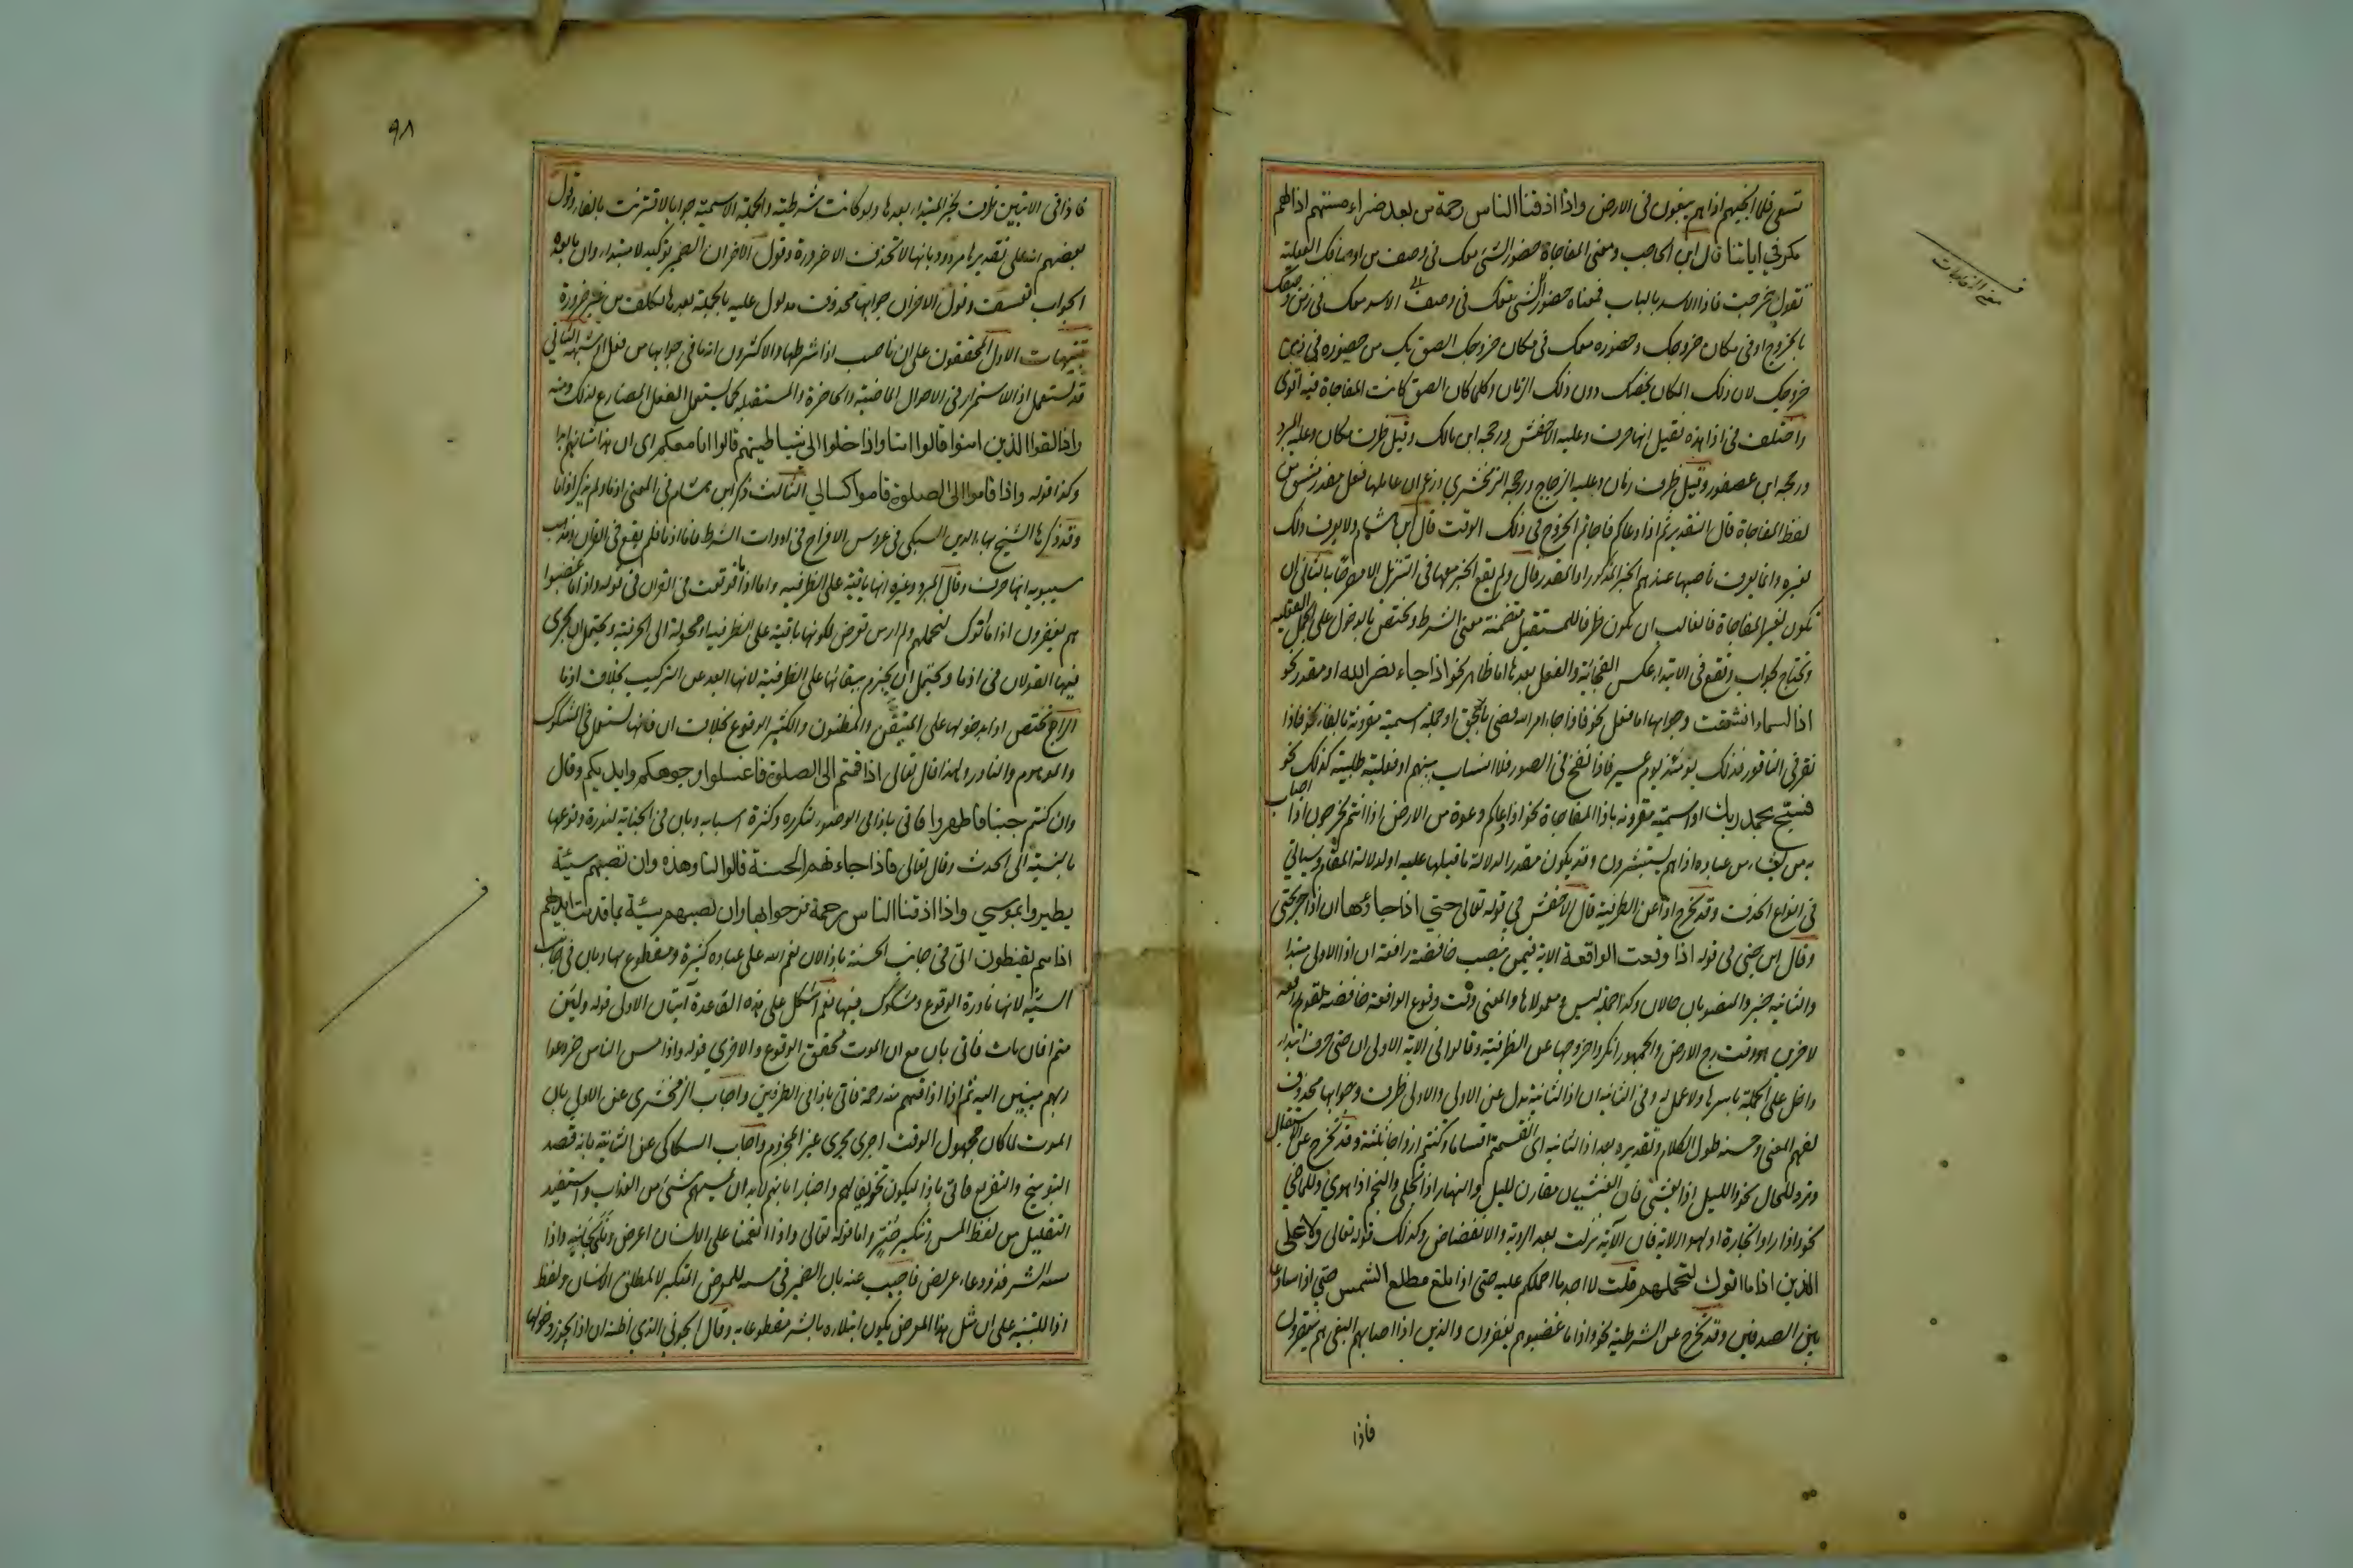 تسعى فلما انجيهم اذا هم يبغون في الارض واذا اذقنا الناس رحمة من بعد ضراء مستهم اذا لهم
مكر في اياتنا قال ابن الحاجب ومعنى المفاجاة حضور الشئ معك في وصف من اوصافك الفعلية
تقول خرجت فاذا الاسد بالباب فمعناه حضور الشئ معك في وصف الاسد معك في زمن وصفك
بالخروج او في مكان خروجك وحضوره معك في مكان خروجك الصق بك من حضوره في زمن
خروجك لان ذلك المكان يخصك دون ذلك الزمان وكلما كان الصق كانت المفاجاة فيه اقوى
واختلف في اذا هذه فقيل انها حرف وعليه الاخفش ورجحه ابن مالك وقيل ظرف مكان وعليه المبرد
ورجحه ابن عصفور وقيل ظرف زمان وعليه الزجاج ورجحه الزمخشري وزعم ان عاملها فعل مقدر مشتق من
لفظ المفاجاة قال التقدير ثم اذا دعاكم فاجاتم الخروج في ذلك الوقت قال ابن هشام ولا يعرف ذلك
لغيره وانما يعرف ناصبها عندهم الخبر المذكور او المقدر قال ولم يقع الخبر معها في التنزيل الا مصرحا به الثاني ان
تكون لغير المفاجاة فالغالب ان تكون ظرفا للمستقبل متضمنة معنى الشرط وتختص بالدخول على الجمل الفعلية
وتحتاج لجواب وتقع في الابتداء عكس الفجائية والفعل بعدها اما ظاهر نحو اذا جاء نصر الله او مقدر نحو
اذا السماء انشقت وجوابها اما فعل نحو فاذا جاء امر الله قضي بالحق او جملة اسمية مقرونة بالفاء نحو فاذا
نقر في الناقور فذلك يومئذ يوم عسير فاذا نفخ في الصور فلا انساب بينهم او فعلية طلبية كذلك نحو
فسبح بحمد ربك او اسمية مقرونة باذا المفاجاة نحو اذا دعاكم دعوة من الارض اذا انتم تخرجون اذا اصاب
به من يشاء من عباده اذا هم يستبشرون وقد يكون مقدرا لدلالة ما قبلها عليه او لدلالة المقام وسياتي
في انواع الحذف وقد تخرج اذا عن الظرفية قال الاخفش في قوله تعالى حتي اذا جاؤها ان اذا جر بحتى
وقال ابن جني في قوله اذا وقعت الواقعة الاية فيمن نصب خافضة رافعة ان اذا الاولى مبتدا
والثانية خبر والمنصوبان حالان وكذا جملة ليس ومعمولاها والمعنى وقت وقوع الواقعة خافضة لقوم رافعة
لاخرين هو وقت رج الارض والجمهور انكروا خروجها عن الظرفية وقالوا في الاية الاولى ان حتى حرف ابتداء
داخل على الجملة باسرها ولا عمل له وفي الثانية ان اذا الثانية بدل من الاولى والاولى ظرف وجوابها محذوف
لفهم المعنى وحسنه طول الكلام وتقديره بعد اذا الثانية اى انقسمتم اقساما وكنتم ازواجا ثلثة وقد تخرج عن الاستقبال
وترد للحال نحو والليل اذا يغشى فان الغشيان مقارن لليل والنهار اذا تجلى والنجم اذا هوى وللماضي
نحو واذا راوا تجارة او لهوا الاية فان الآية نزلت بعد الرؤية والانفضاض وكذلك قوله تعالى ولا على
الذين اذا ما اتوك لتحملهم قلت لا اجد ما احملكم عليه حتى اذا بلغ مطلع الشمس حتى اذا ساوى
بين الصدفين وقد تخرج عن الشرطية نحو واذا ما غضبوا هم يغفرون والذين اذا اصابهم البغي هم ينتصرون
فاذا
٩٨
فاذا في الايتين ظرف لخبر المبتداء بعدها ولو كانت شرطية والجملة الاسمية جوابا لاقترنت بالفاء وقول
بعضهم انه على تقديرها مردود بانها لا تحذف الا ضرورة وقول الاخر ان الضمير توكيد لا مبتداء وان ما بعده
الجواب تعسف وقول الاخر ان جوابها محذوف مدلول عليه بالجملة بعدها تكلف من غير ضرورة
تنبيهات الاول المحققون على ان ناصب اذا شرطها والاكثرون انه ما في جوابها من فعل او شبهه الثاني
قد تستعمل اذا للاستمرار في الاحوال الماضية والحاضرة والمستقبلة كما يستعمل الفعل المضارع لذلك ومنه
واذا لقوا الذين امنوا قالوا امنا واذا خلوا الى شياطينهم قالوا انا معكم اى ان هذا شانهم ابدا
وكذا قوله واذا قاموا الى الصلوة قاموا كسالي الثالث ذكر ابن هشام في المغني اذما ولم يذكر اذا ما
وقد ذكرها الشيخ بهاء الدين السبكي في عروس الافراح في ادوات الشرط فاما اذما فلم يقع في القران ومذهب
سيبويه انها حرف وقال المبرد وغيره انها باقية على الظرفية واما اذا ما فوقعت في القران في قوله واذا ما غضبوا
هم يغفرون اذا ما أتوك لتحملهم ولم ار من تعرض لكونها باقية على الظرفية او محولة الى الحرفية ويحتمل ان يجرى
فيها القولان في اذما ويحتمل ان يجزم ببقائها على الظرفية لانها ابعد عن التركيب بخلاف اذما
الرابع تختص اذا بدخولها على المتيقن والمظنون والكثير الوقوع بخلاف ان فانها تستعمل في المشكوك
والموهوم والنادر ولهذا قال تعالى اذا قمتم الى الصلوة فاغسلوا وجوهكم وايديكم وقال
وان كنتم جنبا فاطهروا فاتى باذا في الوضوء لتكرره وكثرة اسبابه وبان في الجنابة لندرة وقوعها
بالنسبة الى الحدث وقال تعالى فاذا جاءتهم الحسنة قالوا لنا هذه وان تصبهم سيئة
يطيروا بموسي واذا اذقنا الناس رحمة فرحوا بها وان تصبهم سيئة بما قدمت ايديهم
اذا هم يقنطون اتى في جانب الحسنة باذا لان نعم الله على عباده كثيرة ومقطوع بها وبان في جانب
السيئة لانها نادرة الوقوع ومشكوك فيها نعم اشكل على هذه القاعدة آيتان الاولى قوله ولئن
متم افان مات فاتى بان مع ان الموت محقق الوقوع والاخرى قوله واذا مس الناس ضر دعوا
ربهم منيبين اليه ثم اذا اذاقهم منه رحمة فاتى باذا في الطرفين واجاب الزمخشرى عن الاولى بان
الموت لما كان مجهول الوقت اجرى مجرى غير المجزوم واجاب السكاكي عن الثانية بانه قصد
التوبيخ والتقريع فاتى باذا ليكون تخويفا لهم واخبارا بانهم لابد ان يمسهم شئ من العذاب واستفيد
التقليل من لفظ المس وتنكير ضر واما قوله تعالى واذا انعمنا على الانسان اعرض ونأى بجانبه واذا
مسه الشر فذو دعاء عريض فاجيب عنه بان الضمير في مسه للمعرض المتكبر لا لمطلق الانسان ولفظ
اذا للتنبيه على ان مثل هذا المعرض يكون ابتلاؤه بالشر مقطوعا به وقال الجوني الذي اظنه ان اذا يجوز دخولها